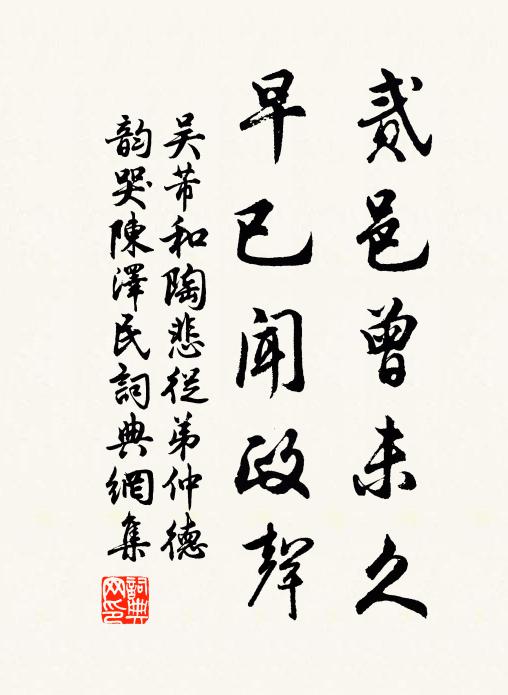 貳邑曾未久
早已聞政聲
吴芾和陶悲從弟仲德
韵哭陳澤民詞典網集
詞典網印